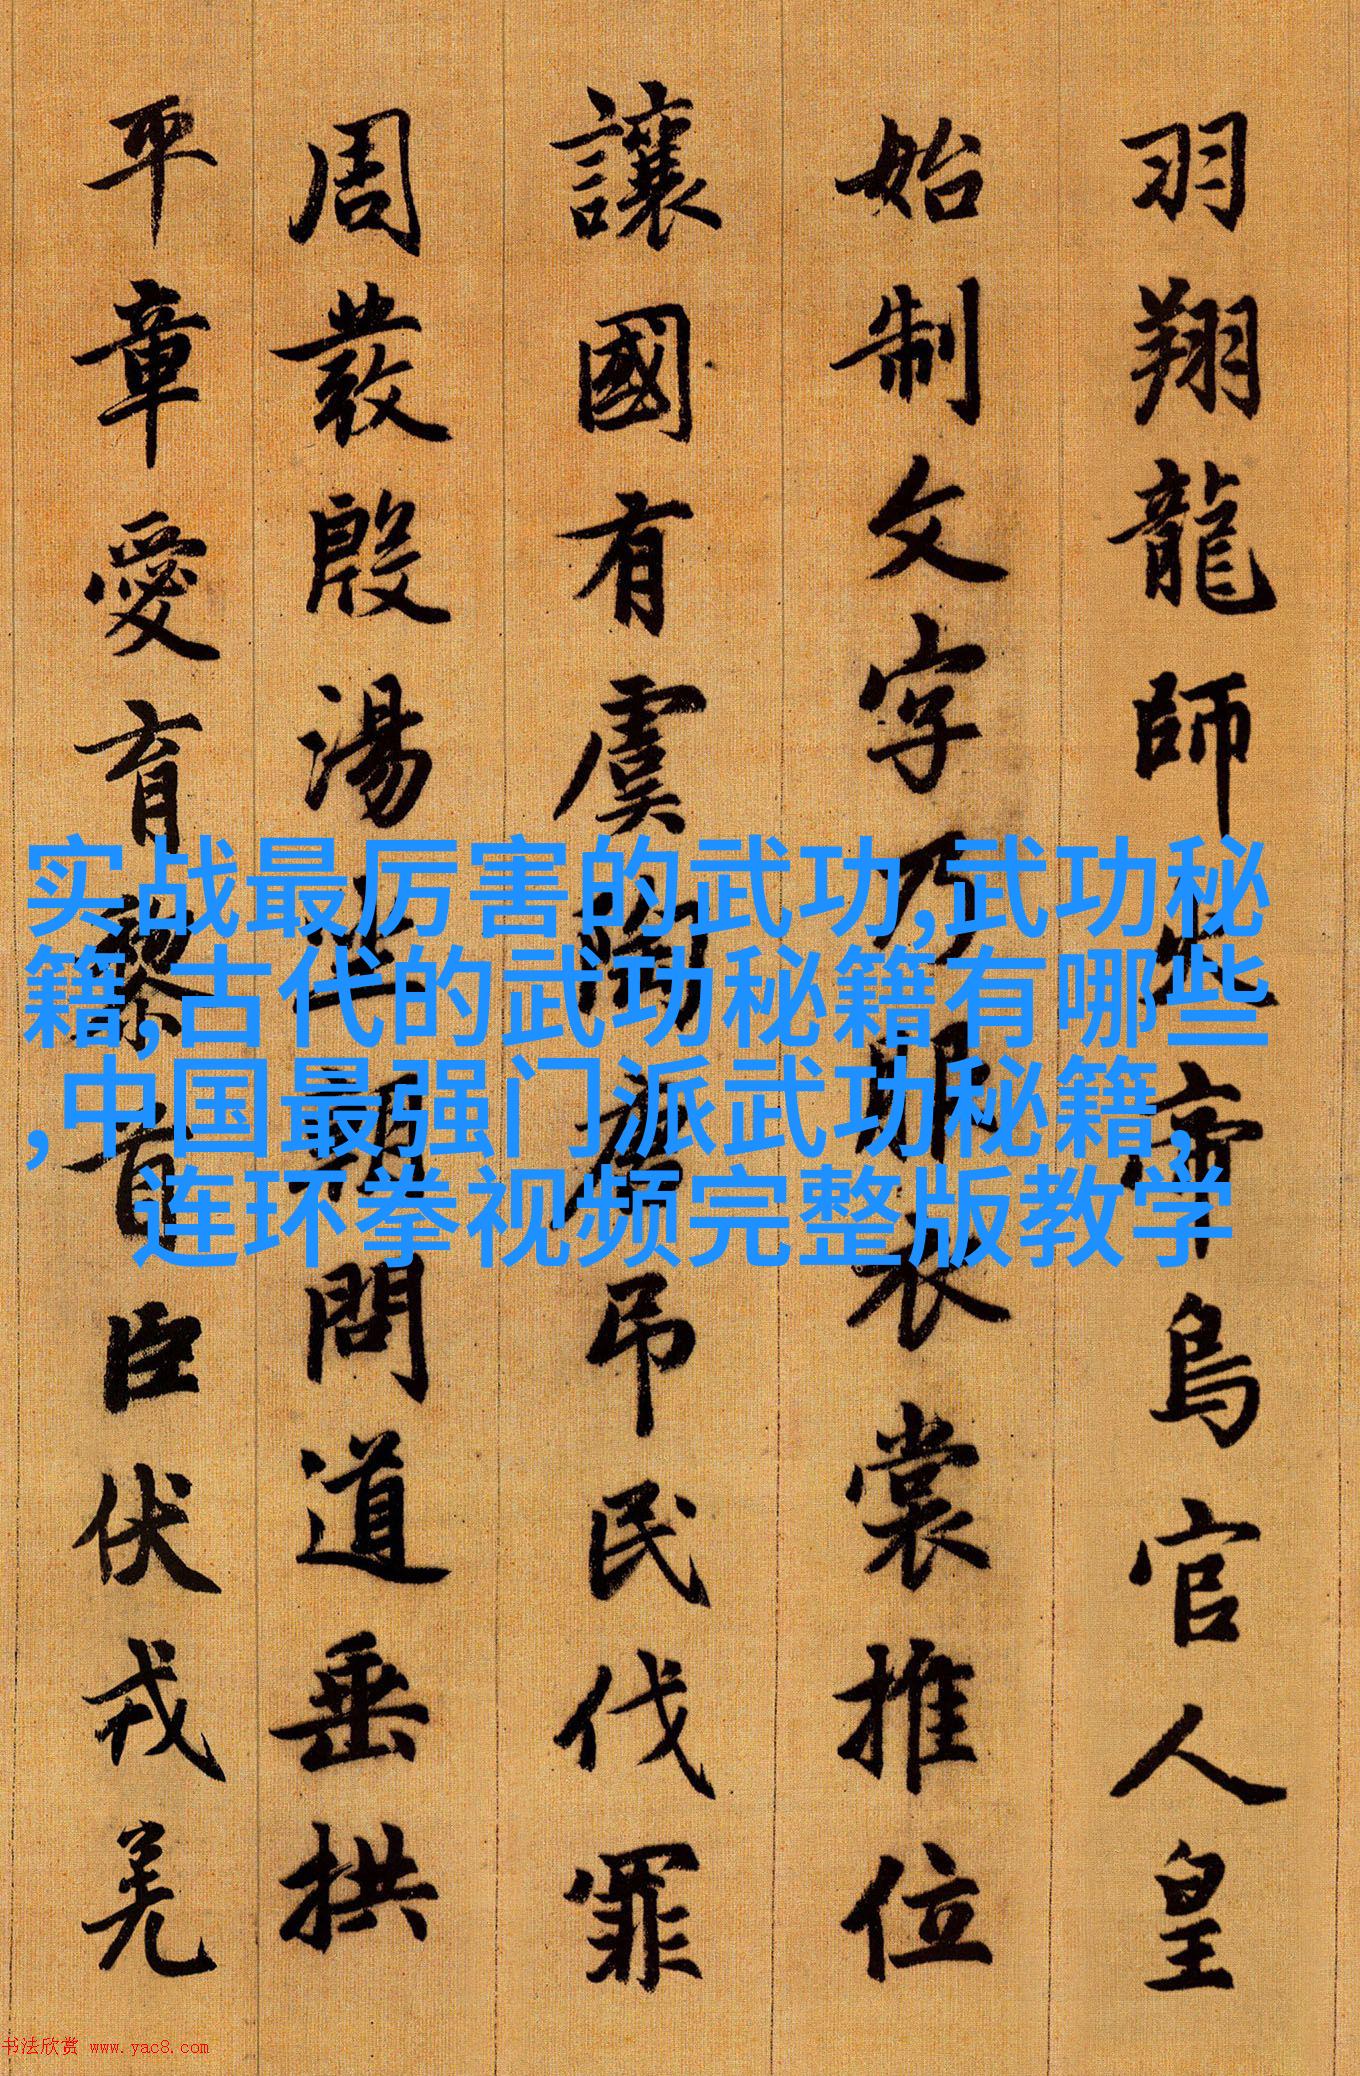 羽翔龍師火帝鳥官人皇
始制文字乃服衣裳推位
讓國有虞陶唐吊民伐罪
周發殷湯坐朝問道垂拱
平章愛育黎首臣伏戎羌
实战最厉害的武功,武功秘
籍,古代的武功秘籍有哪些
,中国最强门派武功秘籍,
连环拳视频完整版教学
书法欣赏 www.yac8.com